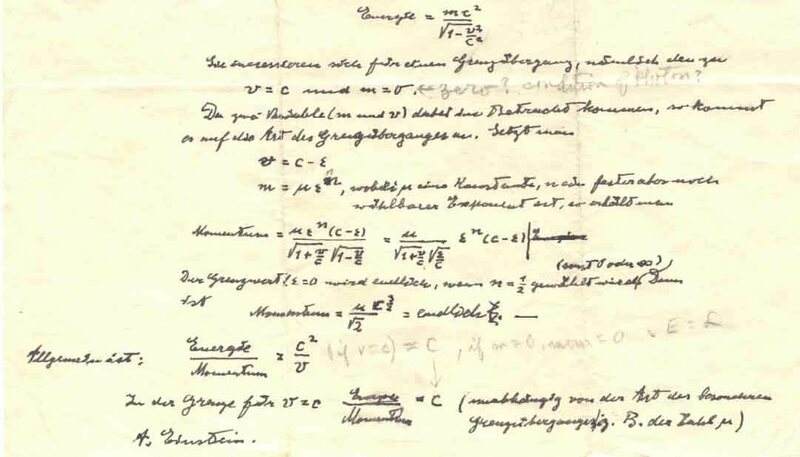 Energie = mc²/√(1-v²/c²)
Sie interessieren sich für einen Grenzübergang, nämlich den zu
v = c und m = 0. ← zero? condition of Photon?
Da zwei Variable (m und v) dabei in Betracht kommen, so kommt
es auf die Art des Grenzüberganges an. Setzt man
v = c - ε
m = μ ε^n, wobei μ eine Konstante, n ein fester aber noch
wählbarer Exponent ist, so erhält man
Momentum = μ ε^n (c-ε)/(√(1+v/c) √(1-v/c)) = μ/(√(1+v/c) √(ε/c)) ε^n (c-ε)
(sonst 0 oder ∞)
Der Grenzwert ε=0 wird endlich, wenn n = 1/2 gewählt wird. Dann
ist Momentum = μ/√2 c^(3/2) = endlich. —
Allgemein ist: Energie/Momentum = c²/v (if v=c) = C, if m → 0, mom = 0
In der Grenze für v = c Energie/Momentum = c (unabhängig von der Art des besonderen
Grenzüberganges z. B. der Zahl μ)
A. Einstein.